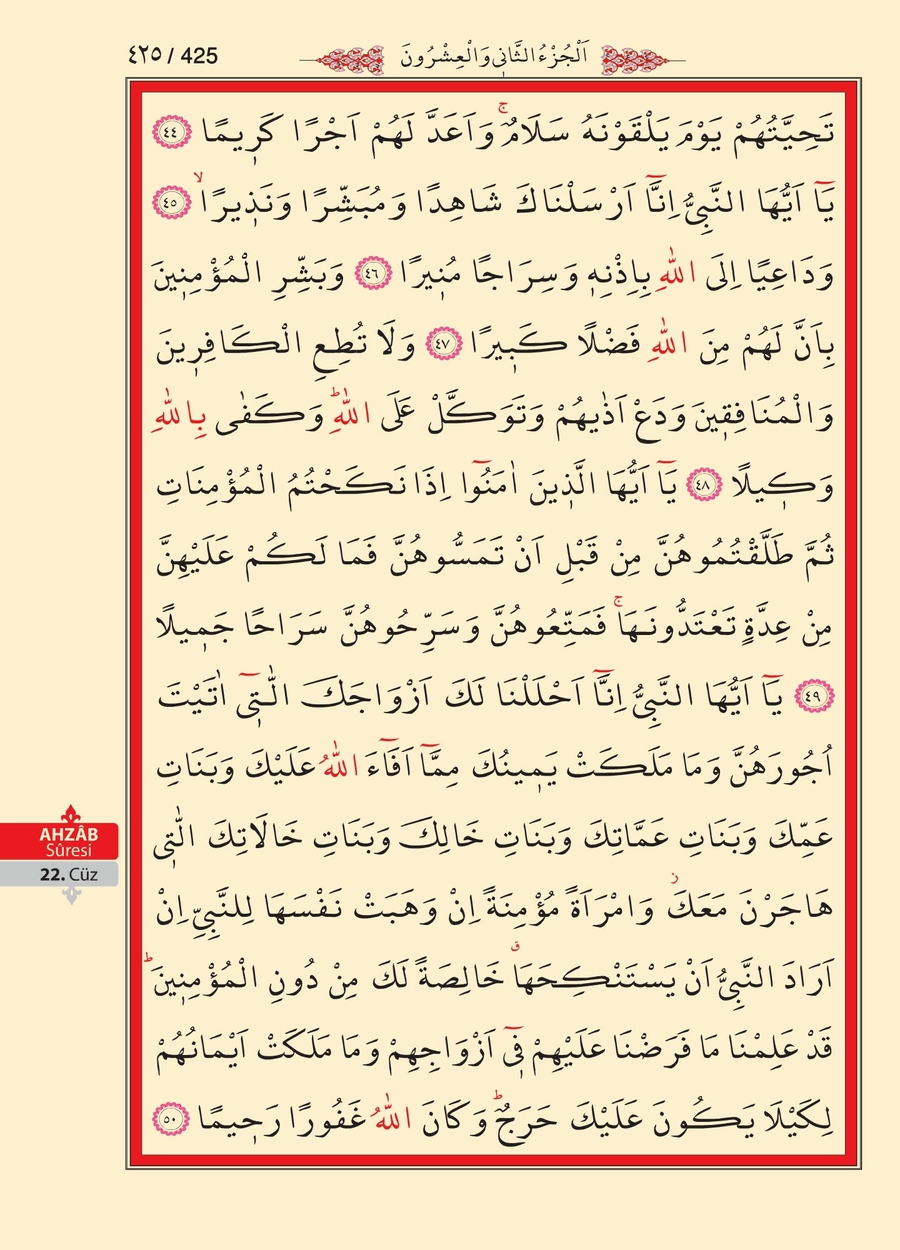 ٤٢٥ / 425
اَلْجُزْءُ الثَّانِي وَالْعِشْرُونَ
تَحِيَّتُهُمْ يَوْمَ يَلْقَوْنَهُ سَلَامٌۚ وَاَعَدَّ لَهُمْ اَجْرًا كَرِيمًا ﴿٤٤﴾
يَٓا اَيُّهَا النَّبِيُّ اِنَّٓا اَرْسَلْنَاكَ شَاهِدًا وَمُبَشِّرًا وَنَذِيرًاۙ ﴿٤٥﴾
وَدَاعِيًا اِلَى اللّٰهِ بِاِذْنِهِ وَسِرَاجًا مُنِيرًا ﴿٤٦﴾ وَبَشِّرِ الْمُؤْمِنِينَ
بِاَنَّ لَهُمْ مِنَ اللّٰهِ فَضْلًا كَبِيرًا ﴿٤٧﴾ وَلَا تُطِعِ الْكَافِرِينَ
وَالْمُنَافِقِينَ وَدَعْ اَذٰيهُمْ وَتَوَكَّلْ عَلَى اللّٰهِۜ وَكَفٰى بِاللّٰهِ
وَكِيلًا ﴿٤٨﴾ يَٓا اَيُّهَا الَّذِينَ اٰمَنُٓوا اِذَا نَكَحْتُمُ الْمُؤْمِنَاتِ
ثُمَّ طَلَّقْتُمُوهُنَّ مِنْ قَبْلِ اَنْ تَمَسُّوهُنَّ فَمَا لَكُمْ عَلَيْهِنَّ
مِنْ عِدَّةٍ تَعْتَدُّونَهَاۚ فَمَتِّعُوهُنَّ وَسَرِّحُوهُنَّ سَرَاحًا جَمِيلًا
﴿٤٩﴾ يَٓا اَيُّهَا النَّبِيُّ اِنَّٓا اَحْلَلْنَا لَكَ اَزْوَاجَكَ الّٰتِٓي اٰتَيْتَ
اُجُورَهُنَّ وَمَا مَلَكَتْ يَمِينُكَ مِمَّٓا اَفَٓاءَ اللّٰهُ عَلَيْكَ وَبَنَاتِ
عَمِّكَ وَبَنَاتِ عَمَّاتِكَ وَبَنَاتِ خَالِكَ وَبَنَاتِ خَالَاتِكَ الّٰتِي
هَاجَرْنَ مَعَكَۘ وَامْرَاَةً مُؤْمِنَةً اِنْ وَهَبَتْ نَفْسَهَا لِلنَّبِيِّ اِنْ
اَرَادَ النَّبِيُّ اَنْ يَسْتَنْكِحَهَاۗ خَالِصَةً لَكَ مِنْ دُونِ الْمُؤْمِنِينَۜ
قَدْ عَلِمْنَا مَا فَرَضْنَا عَلَيْهِمْ فِٓي اَزْوَاجِهِمْ وَمَا مَلَكَتْ اَيْمَانُهُمْ
لِكَيْلَا يَكُونَ عَلَيْكَ حَرَجٌۜ وَكَانَ اللّٰهُ غَفُورًا رَحِيمًا ﴿٥٠﴾
AHZÂB
Sûresi
22. Cüz